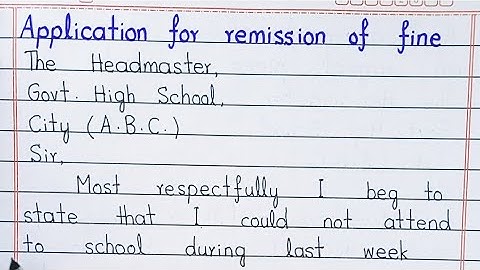 Application for remission of fine
The Headmaster,
Govt. High School,
City (A.B.C.)
Sir,
Most respectfully I beg to
state that I could not attend
to school during last week